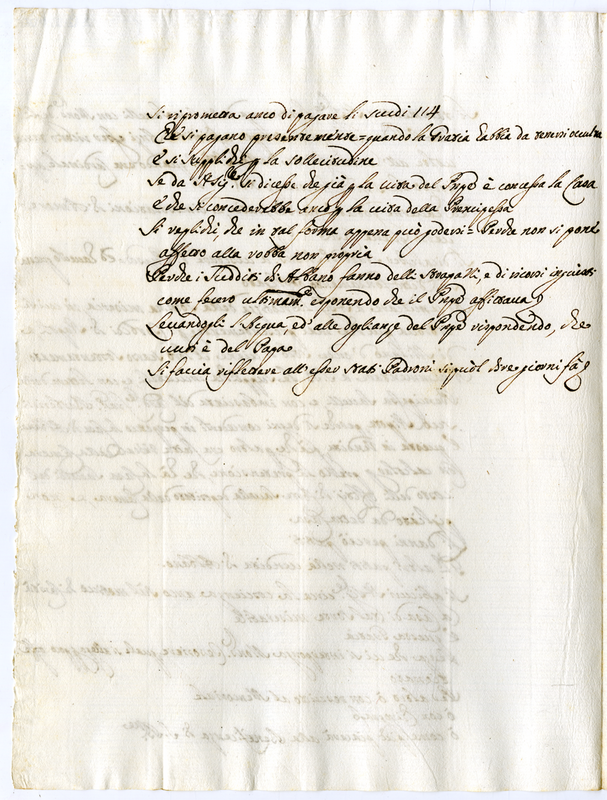 Si riprometta anco di pagare li scudi 114
Che si pagano presentemente = quando la Grazia habbia da tenersi occulta
E si supplichi p la sollecitudine
Se da N Sig.e si dicesse che già p la vita del Prñpe è concessa la Cava
E che si concederebbe anco p la vita della Principessa
Si replichi, che in tal forma appena può godersi = Perche non si pone
affetto alla robba non propria
Perche i sudditi di Albano fanno delli strapazzi, e di ricorsi ingiusti
come fecero ultimam.e esponendo che il Prñpe affittava
Levandogli l'Acqua, ed' alle doglianze del Prñpe rispondendo, che
tutto è del Papa
Si faccia riflettere all' esser stati Padroni si può dire giorni fà